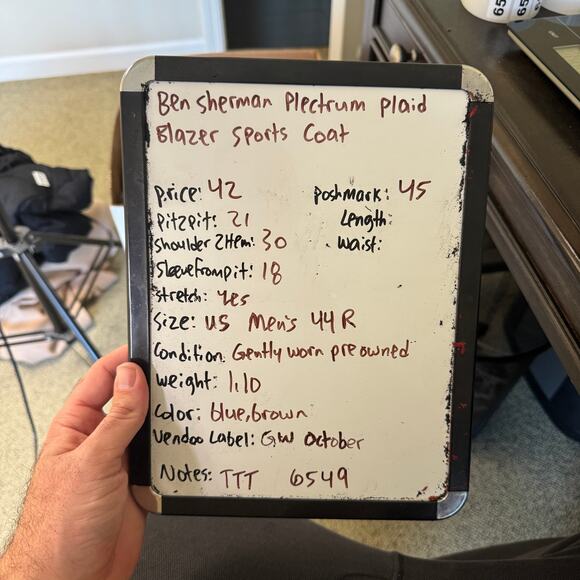 Ben Sherman Plectrum plaid
Blazer Sports Coat
price: 42
poshmark: 45
Pit2pit: 21
Length:
Shoulder 2Hem: 30
Waist:
Sleevefrompit: 18
stretch: yes
Size: US Men's 44R
Condition: Gently worn preowned
weight: 1,10
Color: blue, brown
Vendoo Label: GW October
Notes: TTT 6549
65
65